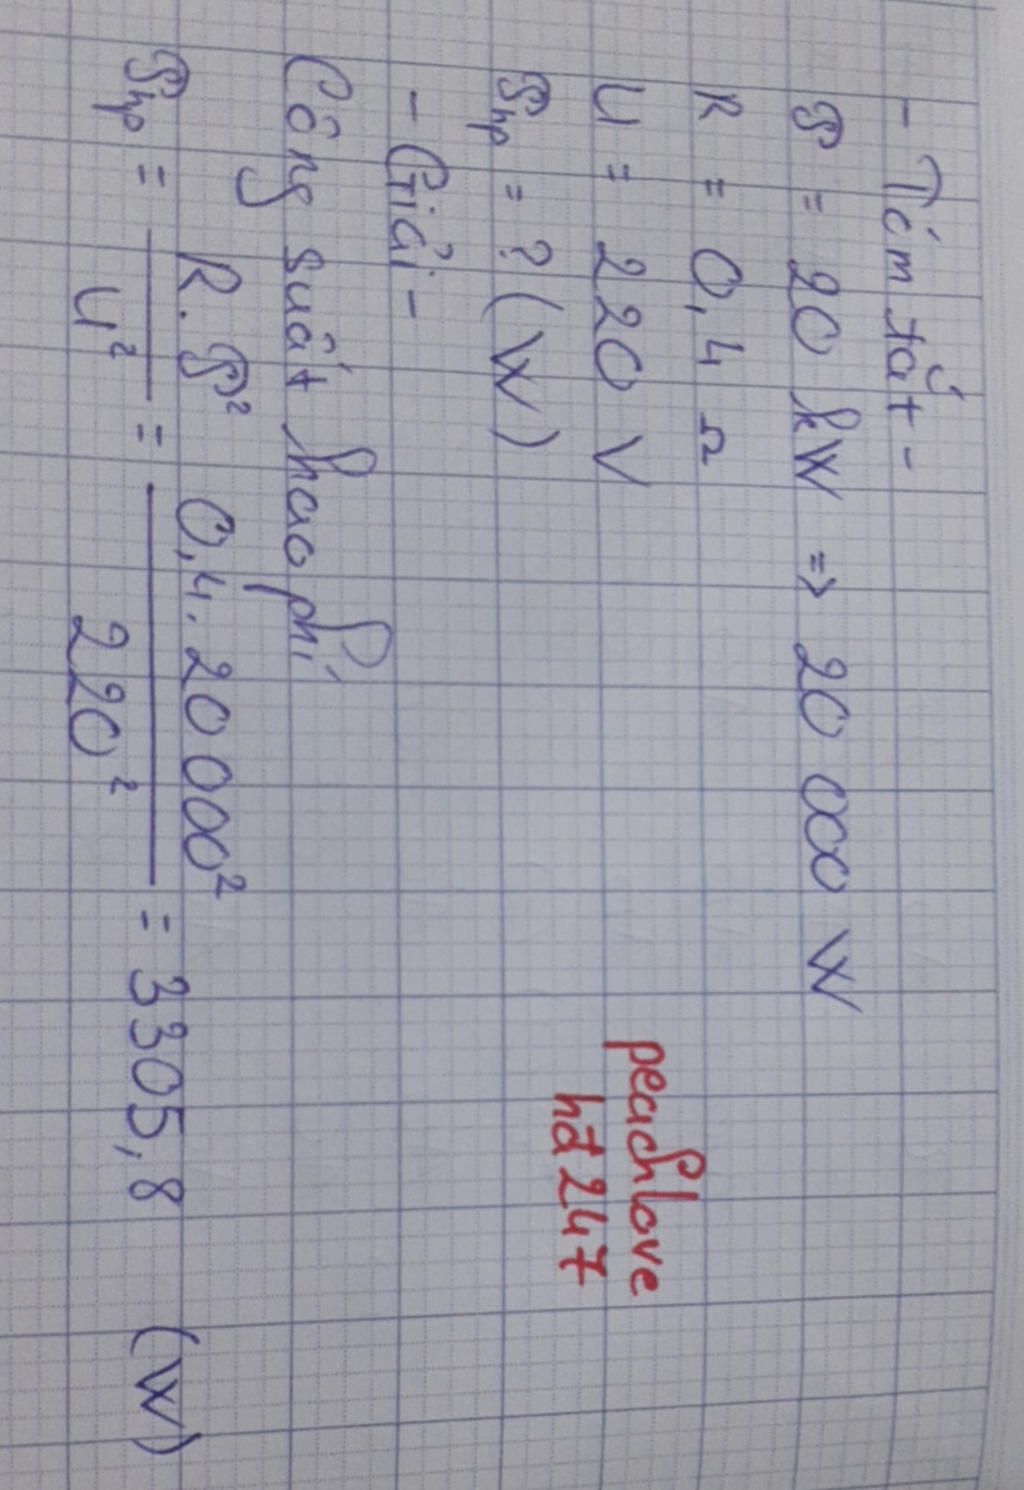 - Tóm tắt -
P = 20 kW => 20 000 W
R = 0,4 Ω
U = 220 V
Php = ? (W)
- Giải -
Công suất hao phí
Php = R.P² / U² = 0,4.20 000² / 220² = 3305,8 (W)
peachlove
hđ247